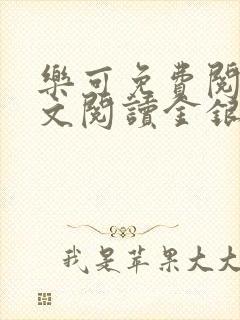 樂可免費閱
文閱讀金銀
我是苹果大大